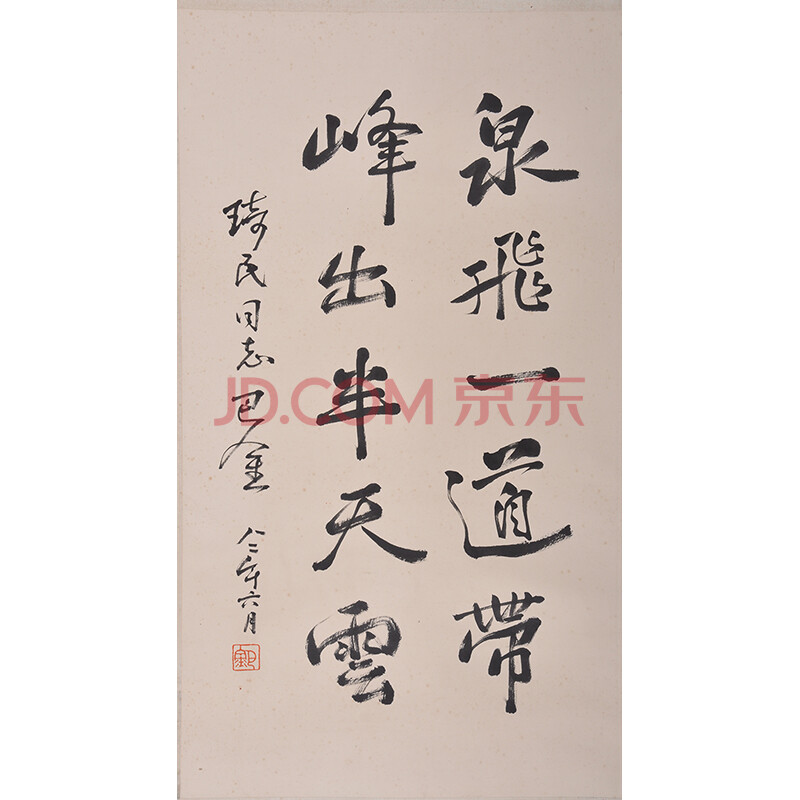 泉飛一道帶
峰出半天雲
琦民同志 巴金
八二年六月
JD.COM 京东